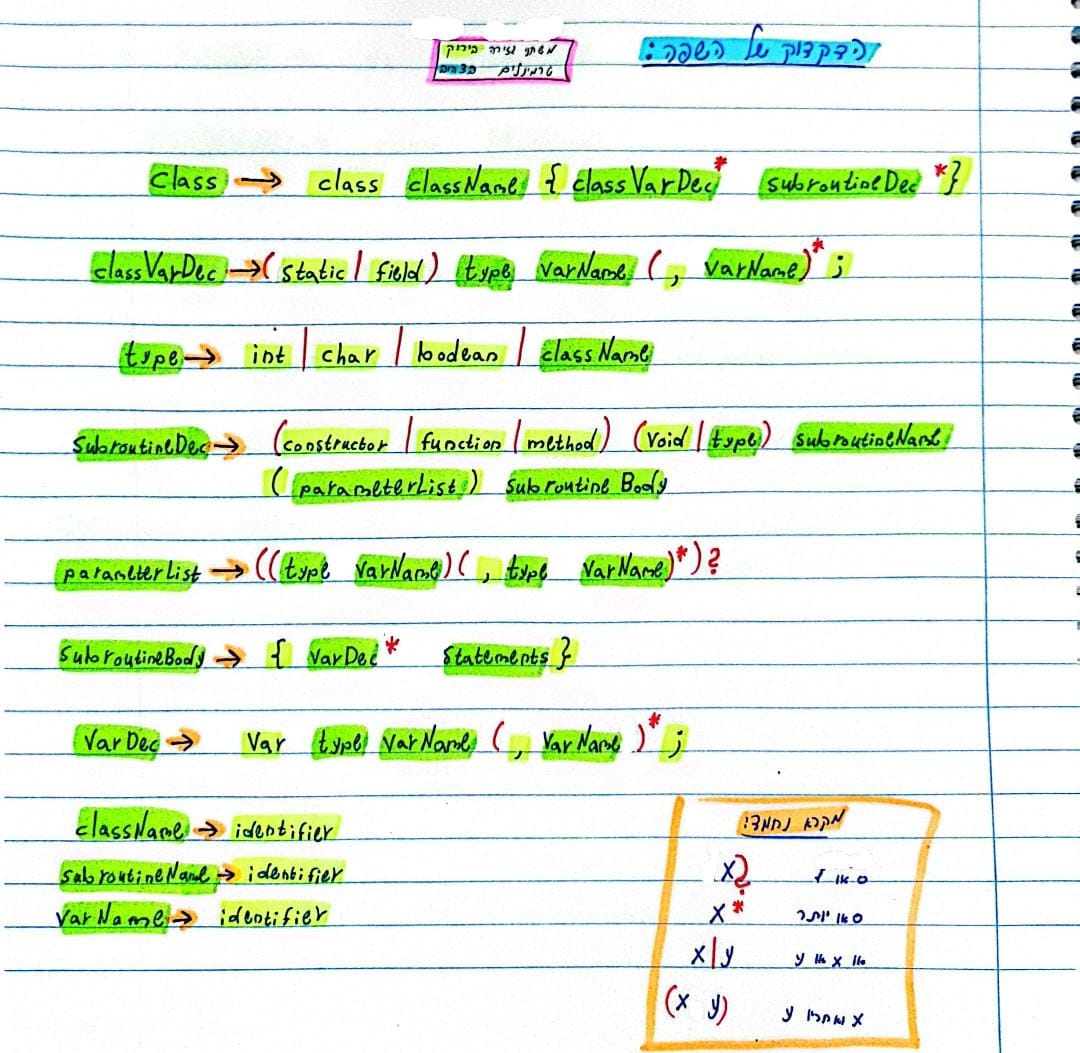 הדקדוק של השפה:
משתני גזירה בירוק
טרמינלים בצהוב
class → class className { classVarDec* subroutineDec *}
classVarDec → ( static | field ) type varName ( , varName)* ;
type → int | char | boolean | className
subroutineDec → (constructor | function | method) (void | type) subroutineName
( parameterList ) subroutine Body
parameterList → ((type varName)( , type varName)*)?
subroutineBody → { varDec* statements }
varDec → var type varName ( , varName )* ;
className → identifier
subroutineName → identifier
varName → identifier
מקרא נחמד:
x? 0 או 1
x* 0 או יותר
x|y או x או y
(x y) x ואחריו y